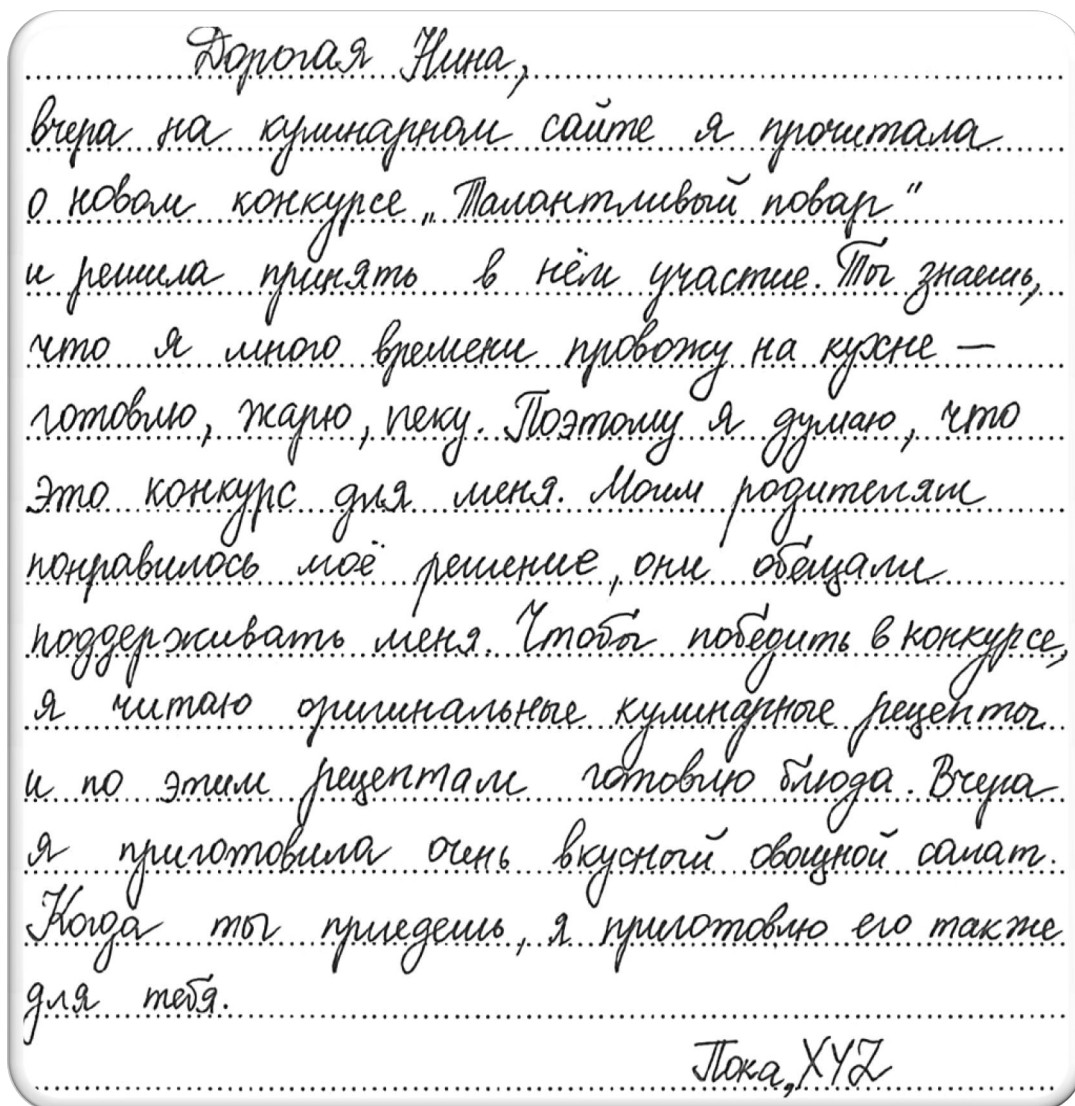 Дорогая Нина,
вчера на кулинарном сайте я прочитала
о новом конкурсе „Талантливый повар“
и решила принять в нём участие. Ты знаешь,
что я много времени провожу на кухне –
готовлю, жарю, пеку. Поэтому я думаю, что
это конкурс для меня. Моим родителям
понравилось моё решение, они обещали
поддерживать меня. Чтобы победить в конкурсе,
я читаю оригинальные кулинарные рецепты
и по этим рецептам готовлю блюда. Вчера
я приготовила очень вкусный овощной салат.
Когда ты приедешь, я приготовлю его также
для тебя.
Пока, XYZ